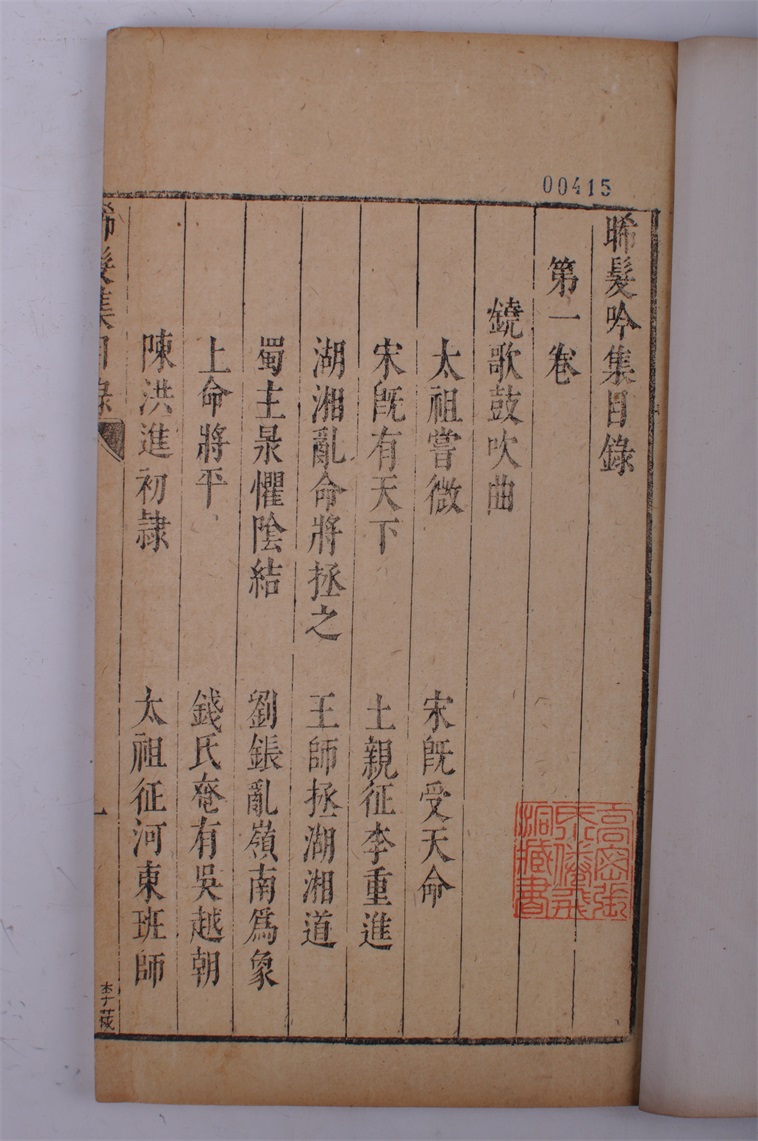 00415
晞髮吟集目錄
第一卷
鐃歌鼓吹曲
太祖嘗微 宋旣受天命
宋旣有天下 上親征李重進
湖湘亂命將拯之 王師拯湖湘道
蜀主昶懼陰結 劉鋹亂嶺南爲象
上命將平 錢氏奄有吳越朝
陳洪進初隷 太祖征河東班師
晞髮集目錄
一